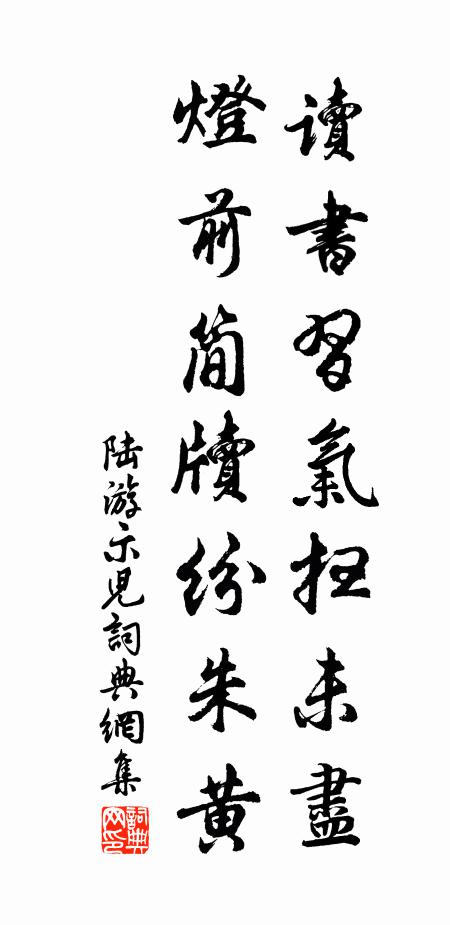 讀書習氣掃未盡
燈前簡牘紛朱黃
陸游示兒詞典網集
詞典网印